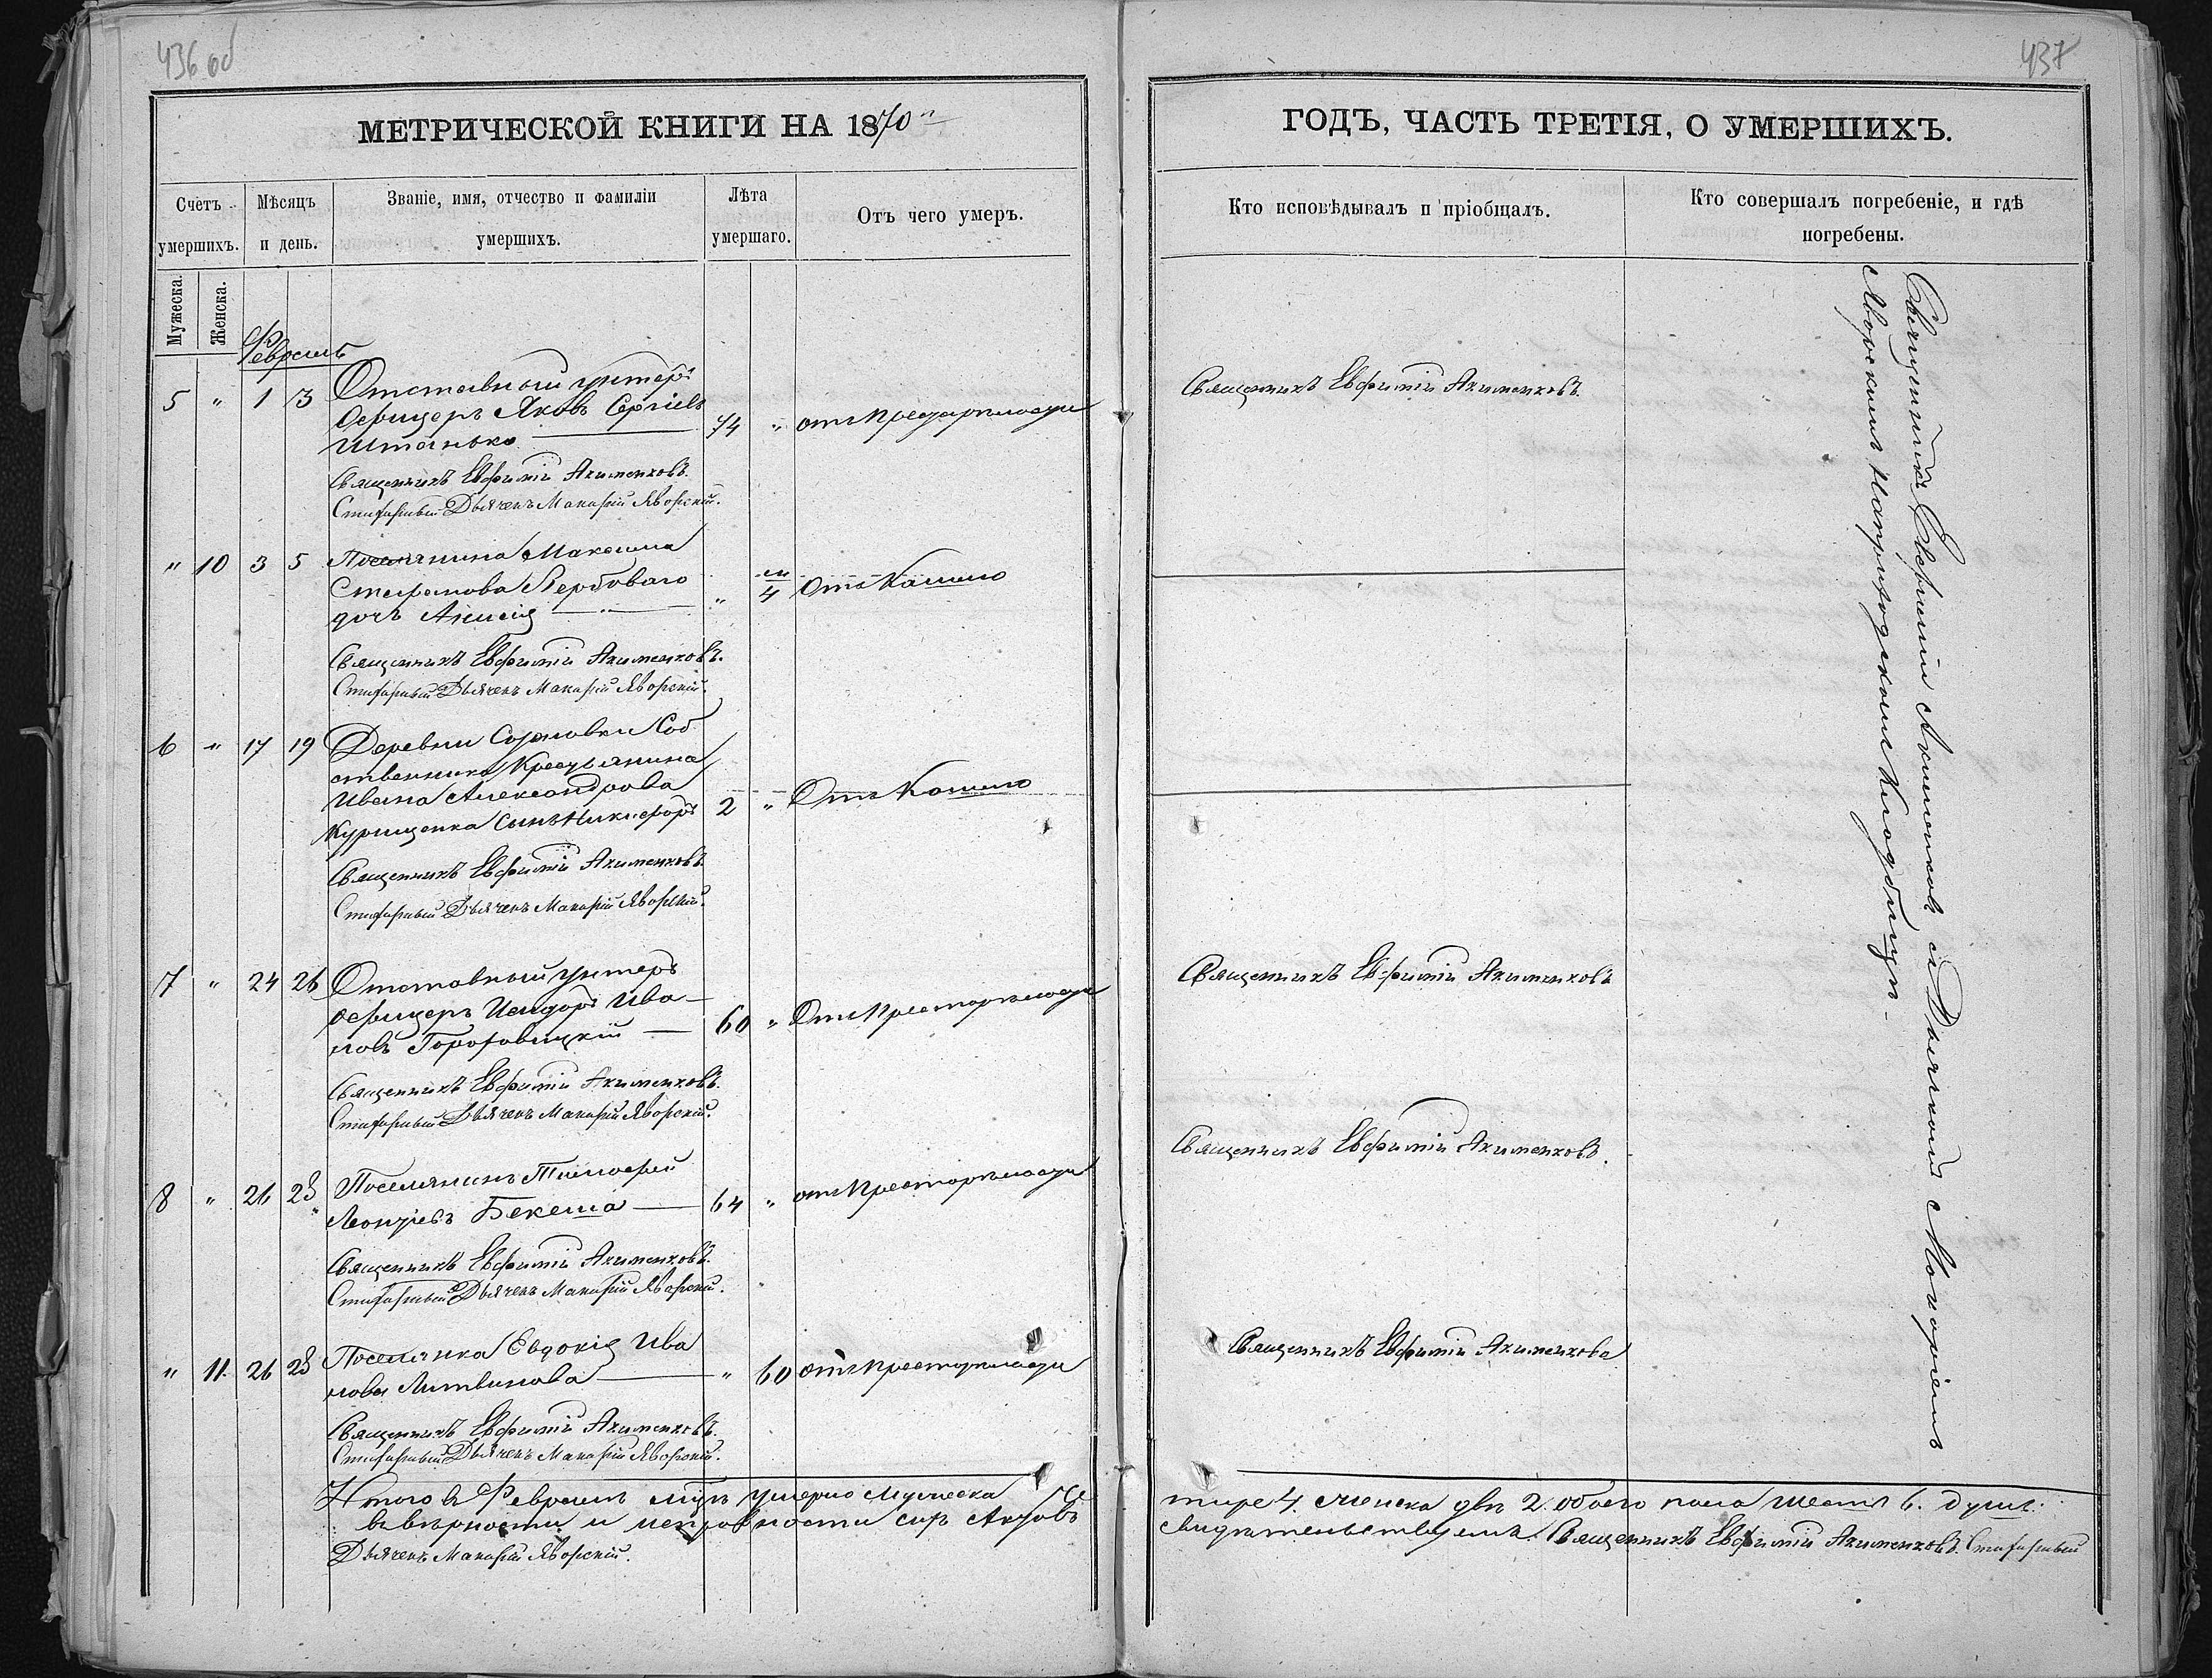 436 об
МЕТРИЧЕСКОЙ КНИГИ НА 1870й
Счетъ умершихъ.
Мѣсяцъ и день.
Званіе, имя, отчество и фамиліи умершихъ.
Лѣта умершаго.
Отъ чего умеръ.
Мужеска.
Женска.
Февраль
5 " 1 3 Отставный унтеръ
Офицеръ Яковъ Сергіевъ
Штанько 74 " отъ престарѣлости
Священникъ Евфимій Акименковъ.
Стихарный Дьячекъ Макарій Яворскій.
" 10 3 5 Поселянина Максима
Стефанова Вербоваго
дочь Анисія " м 4 Отъ Кашлю
Священникъ Евфимій Акименковъ.
Стихарный Дьячекъ Макарій Яворскій.
6 " 17 19 Деревни Соб
ственника Крестьянина
Ивана Александрова
Курищенка сынъ Никифоръ 2 " Отъ Кашлю
Священникъ Евфимій Акименковъ.
Стихарный Дьячекъ Макарій Яворскій.
7 " 24 26 Отставный унтеръ
офицеръ Исидоръ Ива-
новъ Гороховицкій 60 " Отъ престарѣлости
Священникъ Евфимій Акименковъ.
Стихарный Дьячекъ Макарій Яворскій.
8 " 26 28 Поселянинъ Тимофей
Леонтіевъ Бекеша 64 " отъ престарѣлости
Священникъ Евфимій Акименковъ.
Стихарный Дьячекъ Макарій Яворскій.
" 11. 26 28 Поселянка Евдокія Ива
нова Литвинова " 60 отъ престарѣлости
Священникъ Евфимій Акименковъ.
Стихарный Дьячекъ Макарій Яворскій.
Итого в Февралѣ мцѣ умерло мужеска
въ вѣрности и исправности сихъ Актовъ
Дьячекъ Макарій Яворскій.
437
ГОДЪ, ЧАСТЬ ТРЕТІЯ, О УМЕРШИХЪ.
Кто исповѣдывалъ и пріобщалъ.
Кто совершалъ погребеніе, и гдѣ погребены.
Священникъ Евфимій Акименковъ.
Священникъ Евфимій Акименковъ
Священникъ Евфимій Акименковъ.
Священникъ Евфимій Акименковъ
Священникъ Евфимій Акименковъ съ Дьячкомъ Макаріемъ
Яворскимъ на приходскомъ Кладбищѣ -
тыре 4. женска двѣ 2. обоего пола шесть 6. душъ.
свидѣтельствуемъ. Священникъ Евфимій Акименковъ. Стихарный